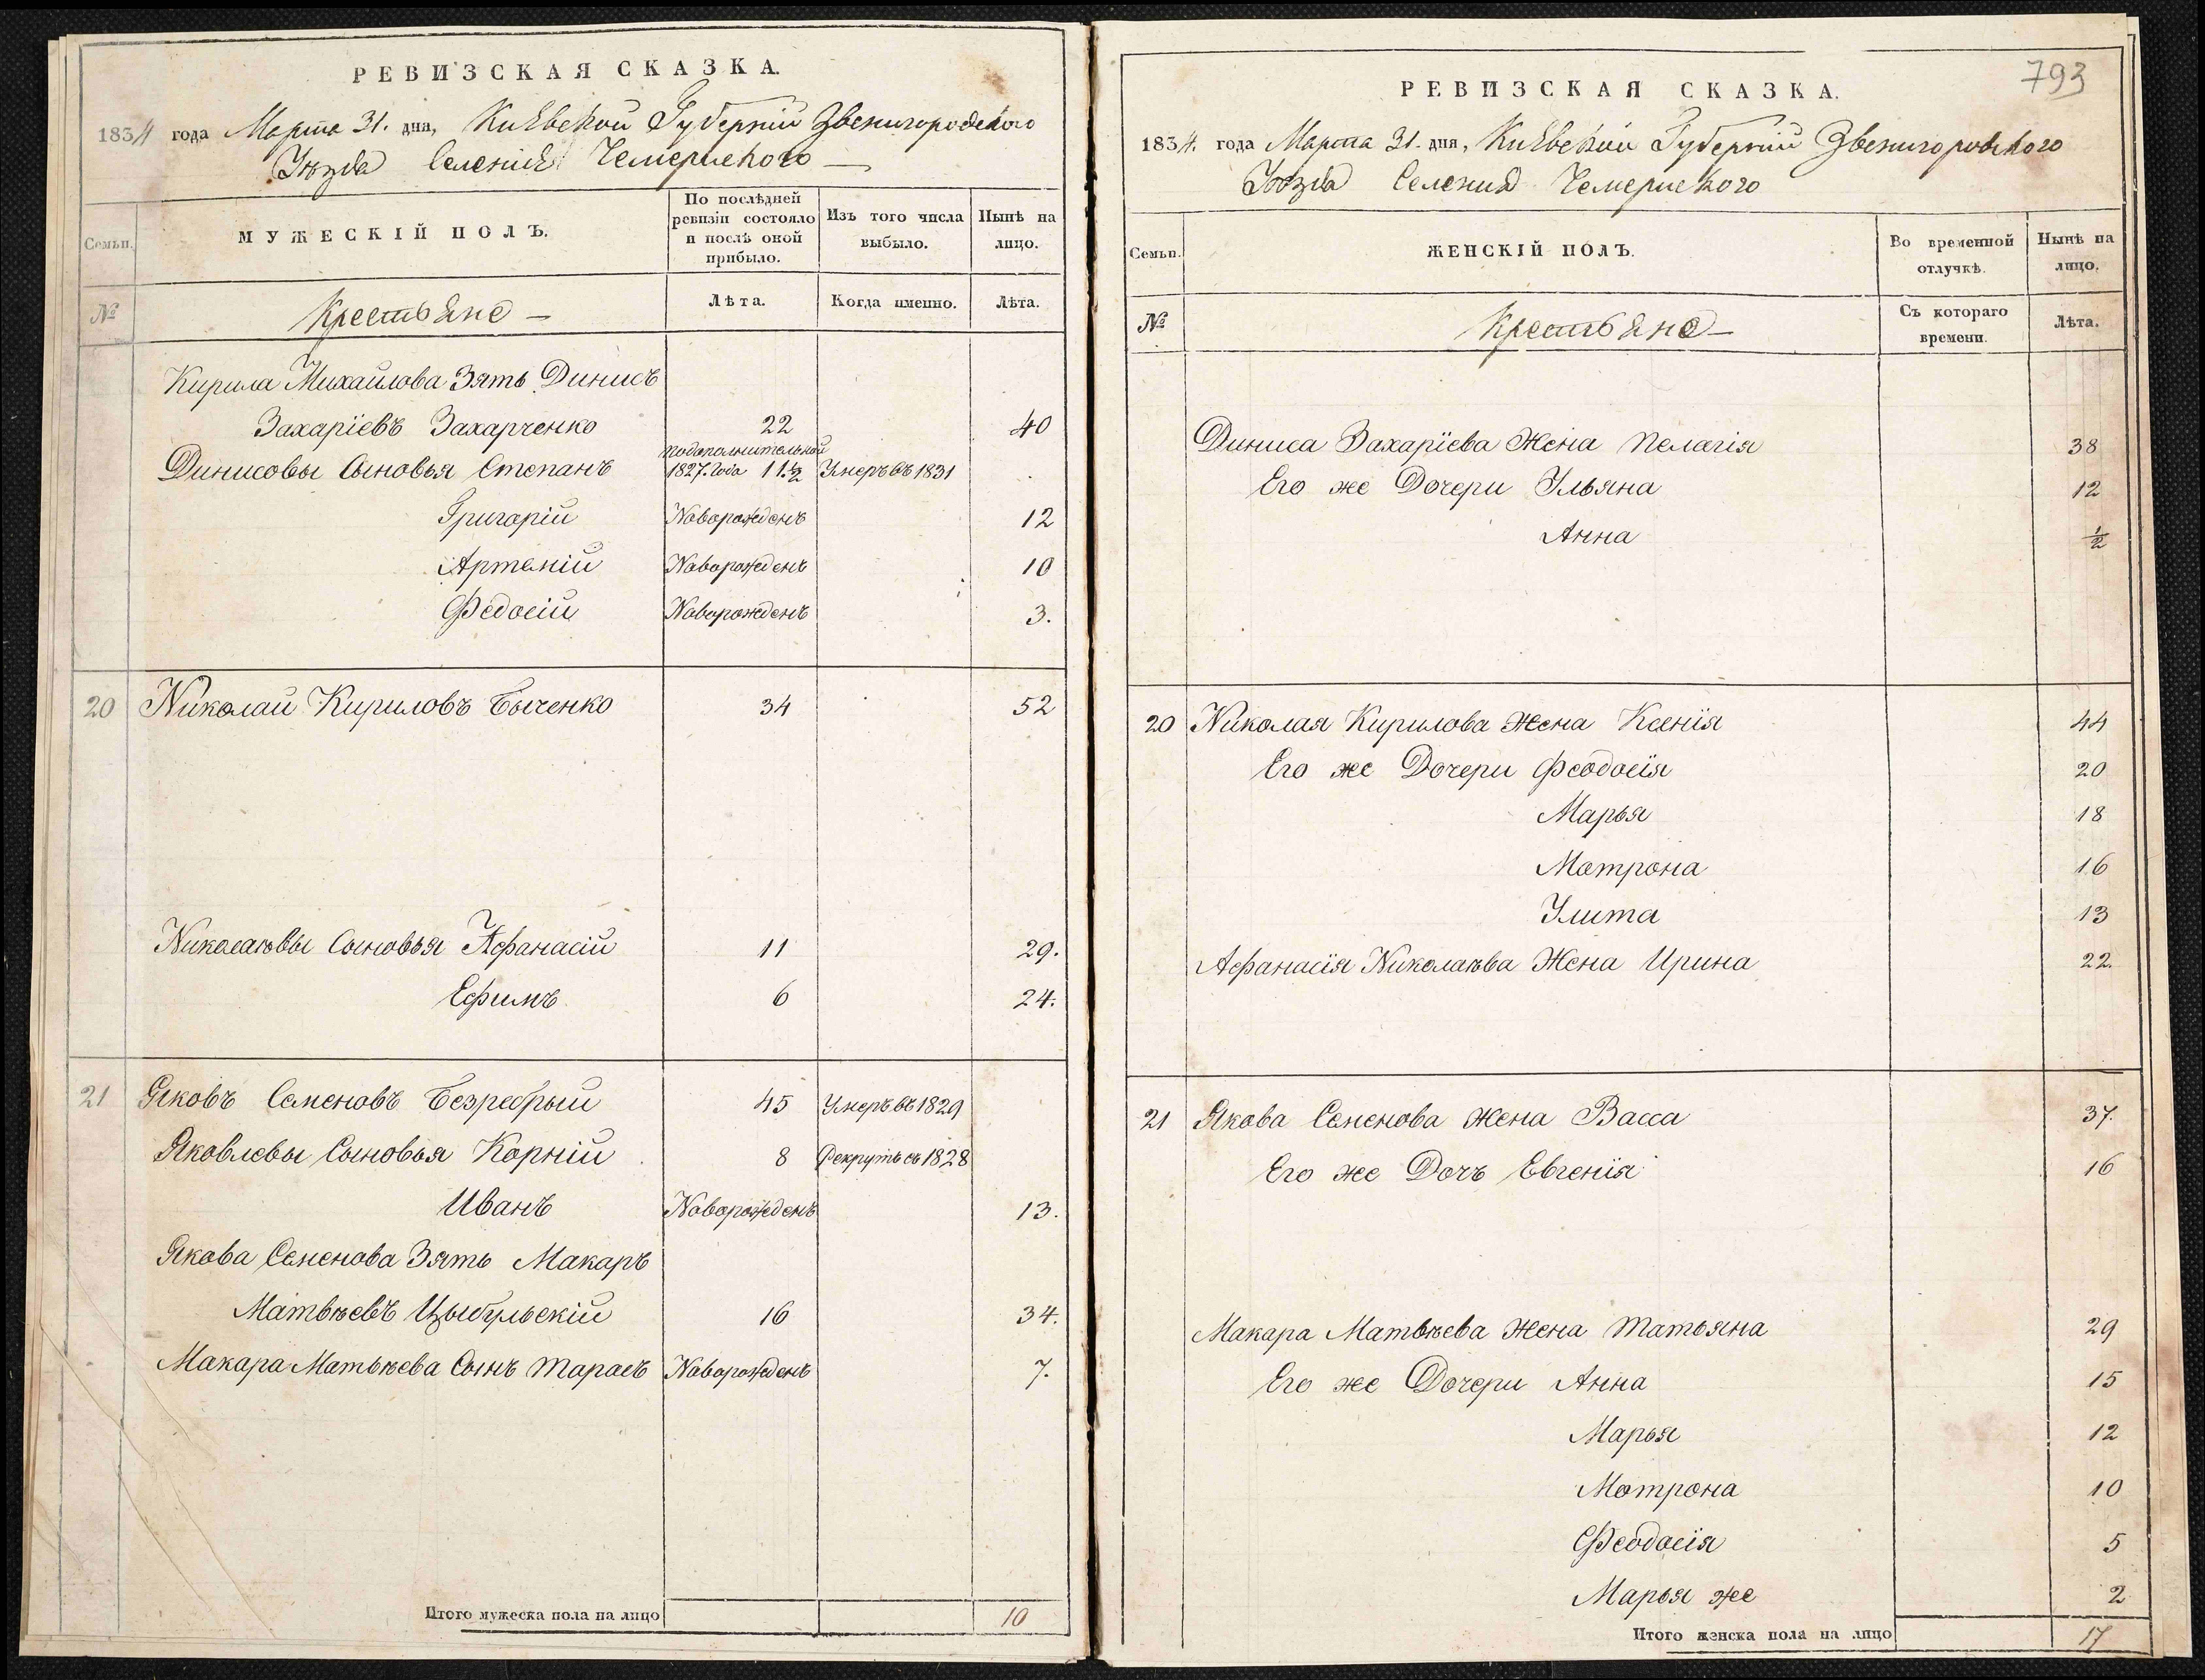 РЕВИЗСКАЯ СКАЗКА.
1834 года Марта 31. дня, Киевской Губернии Звенигородского
Уѣзда Селения Чемериского
Семьи.
МУЖЕСКІЙ ПОЛЪ.
По послѣдней ревизіи состояло и послѣ оной прибыло.
Изъ того числа выбыло.
Нынѣ на лицо.
№
Крестьяне
Лѣта.
Когда именно.
Лѣта.
Кирила Михайлова Зять Динисъ
Захаріевъ Захарченко 22 40
Динисовы Сыновья Степанъ подополнительной 1827. года 11 ½ Умеръ въ 1831
Григорій Новорожденъ 12
Артемій Новорожденъ 10
Федосій Новорожденъ 3.
20 Николай Кириловъ Быченко 34 52
Николаювы Сыновья Афанасій 11 29.
Ефимъ 6 24.
21 Яковъ Семеновъ Безребрый 45 Умеръ въ 1829
Яковлевы Сыновья Корній 8 Рекрутъ съ 1828
Иванъ Новорожденъ 13.
Якова Семенова Зять Макаръ
Матвѣевъ Цыбульскій 16 34.
Макара Матвѣева Сынъ Тарасъ Новорожденъ 7.
Итого мужеска пола на лицо 10
793
РЕВИЗСКАЯ СКАЗКА.
1834. года Марта 31. дня, Киевской Губернии Звенигородского
Уѣзда Селения Чемериского
Семьи.
ЖЕНСКІЙ ПОЛЪ.
Во временной отлучкѣ.
Нынѣ на лицо.
№
Крестьяне
Съ котораго времени.
Лѣта.
Диниса Захаріева Жена Пелагія 38
Его же Дочери Ульяна 12
Анна ½
20 Николая Кирилова Жена Ксенія 44
Его же Дочери Феодосія 20
Марья 18
Мотрона 16
Улита 13
Афанасія Николаѣва Жена Ирина 22.
21 Якова Семенова Жена Васса 37.
Его же Дочъ Евгенія 16
Макара Матвѣева Жена Татьяна 29
Его же Дочери Анна 15
Марья 12
Мотрона 10
Феодосія 5
Марья же 2
Итого женска пола на лицо 17